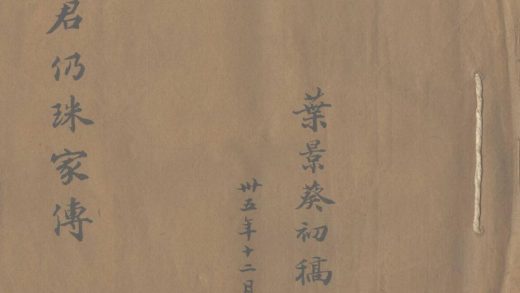 葉景葵初稿
卅五年十二
君仍珠家傳